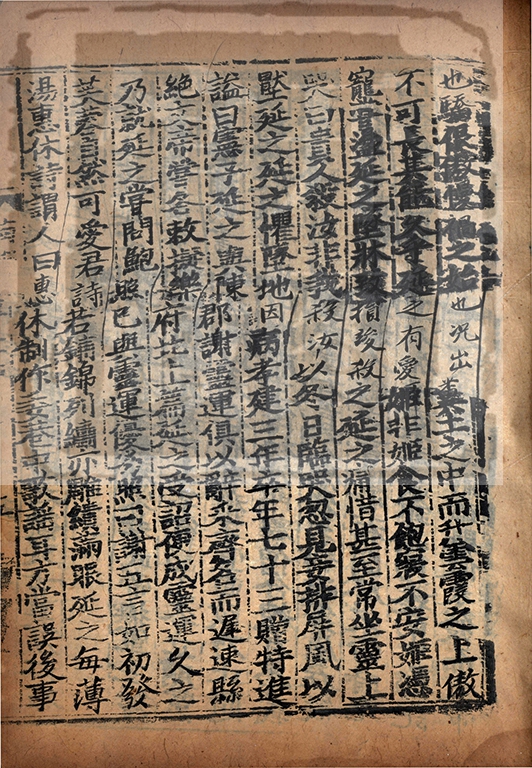 也驕佷傲慢禍之始也況出糞土之中而升雲霞之上傲
不可長其能久乎延之有愛姬非姬食不飽寢不安姬憑
寵嘗盪延之墜牀致損竣殺之延之痛惜甚至常坐靈上
哭曰貴人殺汝非我殺汝以冬日臨哭忽見妾排屏風以
壓延之延之懼墜地因病孝建三年卒年七十三贈特進
謚曰憲子延之與陳郡謝靈運俱以辭采齊名而遲速縣
絕文帝嘗各敕擬樂府北上篇延之受詔便成靈運久之
乃就延之嘗問鮑照己與靈運優劣照曰謝五言如初發
芙蓉自然可愛君詩若鋪錦列繡亦雕繢滿眼延之每薄
湯惠休詩謂人曰惠休制作委巷中歌謠耳方當誤後事